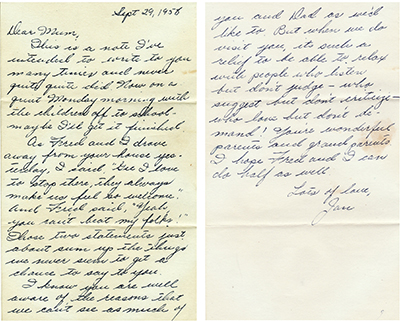 Sept 29, 1958
Dear Mum,
This is a note I've
intended to write to you
many times and never
quite quite did. Now on a
great Monday morning with
the children off to school-
maybe I'll get it finished.
As Fred and I drove
away from your house yes-
terday, I said, "Gee I love
to stop there, they always
make us feel so welcome."
and Fred said, "Yeah-
you can't beat my folks!"
Those two statements just
about sum up the things
we never seem to get a
chance to say to you.
I know you are well
aware of the reasons that
we can't see as much of
you and Dad as we'd
like to But when we do
visit you, its such a
relief to be able to relax
with people who listen
but don't judge - who
suggest but don't criticize-
who love but don't de-
mand! You're wonderful
parents and grand parents.
I hope Fred and I can
do half as well
Lots of love,
Jan